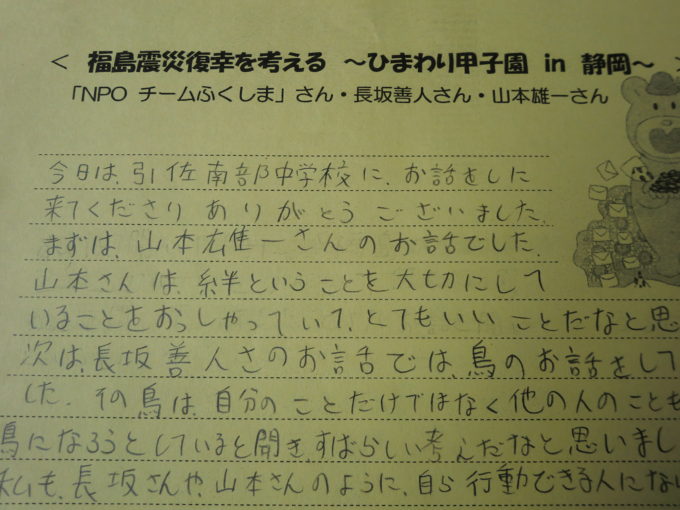 < 福島震災復幸を考える ～ひまわり甲子園 in 静岡～ >
「NPO チームふくしま」さん・長坂善人さん・山本雄一さん
今日は、引佐南部中学校に、お話をしに
来てくださりありがとうございました。
まずは、山本雄一さんのお話でした。
山本さんは、絆ということを大切にして
いることをおっしゃっていて、とてもいいことだなと思
次は、長坂善人さのお話では、鳥のお話をして
した。その鳥は、自分のことだけではなく他の人のことも
鳥になろうとしていると聞き、すばらしい考んだなと思いまし
私も、長坂さんや、山本さんのように、自ら行動できる人にな